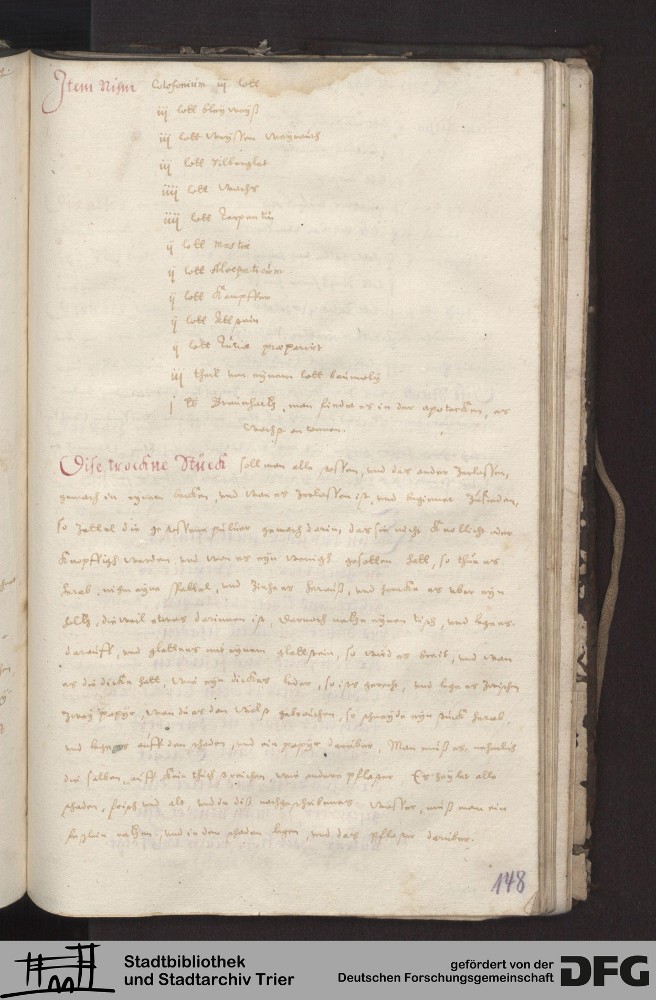 Item Nihm Colofonium iij lott
iij lott bleÿ weÿß
iij lott weÿssen weÿrauch
iij lott silberglet
iiij lott wachs
iiij lott terpentin
ij lott mastix
ij lott
ij lott kampffer
ij lott
ij lott tutiæ præparirt
iij theil von eÿnem lott baumolÿ
j lb man findet es in der apotecken, es
wachst an
Dise trockne Stück soll man alle stossen, und das ander zerlassen,
gemach in eÿnem becken, und wan es zerlassen ist, und beginnet zu sieden,
so zettel die gestossene pulver gemach darin, das sie nicht knollicht oder
knopffigh werden und wan es eÿn wenigh gesotten hatt, so thue es
herab, nihm eÿne spattel, und ziehe es heraus, und es uber eÿn
holtz, die weil etwas darinnen ist, darnach eÿnen tisch, und lege es
darauff, und glattens mit eÿnem glettstein, so wird es breit, und wan
es die dicken hatt, wie eÿn dickes leder, so ists gerecht, und lege es zwischen
zweÿ papÿr, wan du es dan wilst gebrauchen, so schneÿde eÿn stück herab,
und lege es auff den schaden, und ein papÿr daruber, Man muß es nehmlich
die salben, auff kein thuch streichen, wie andere pflaster, Es heÿlet alle
schaden, frisch und alt, und in diß nachgeschribenes wasser, muß man ein
netzen, und in den schaden legen, und das pflaster daruber.
148
Stadtbibliothek
und Stadtarchiv Trier
gefördert von der
Deutschen Forschungsgemeinschaft
DFG